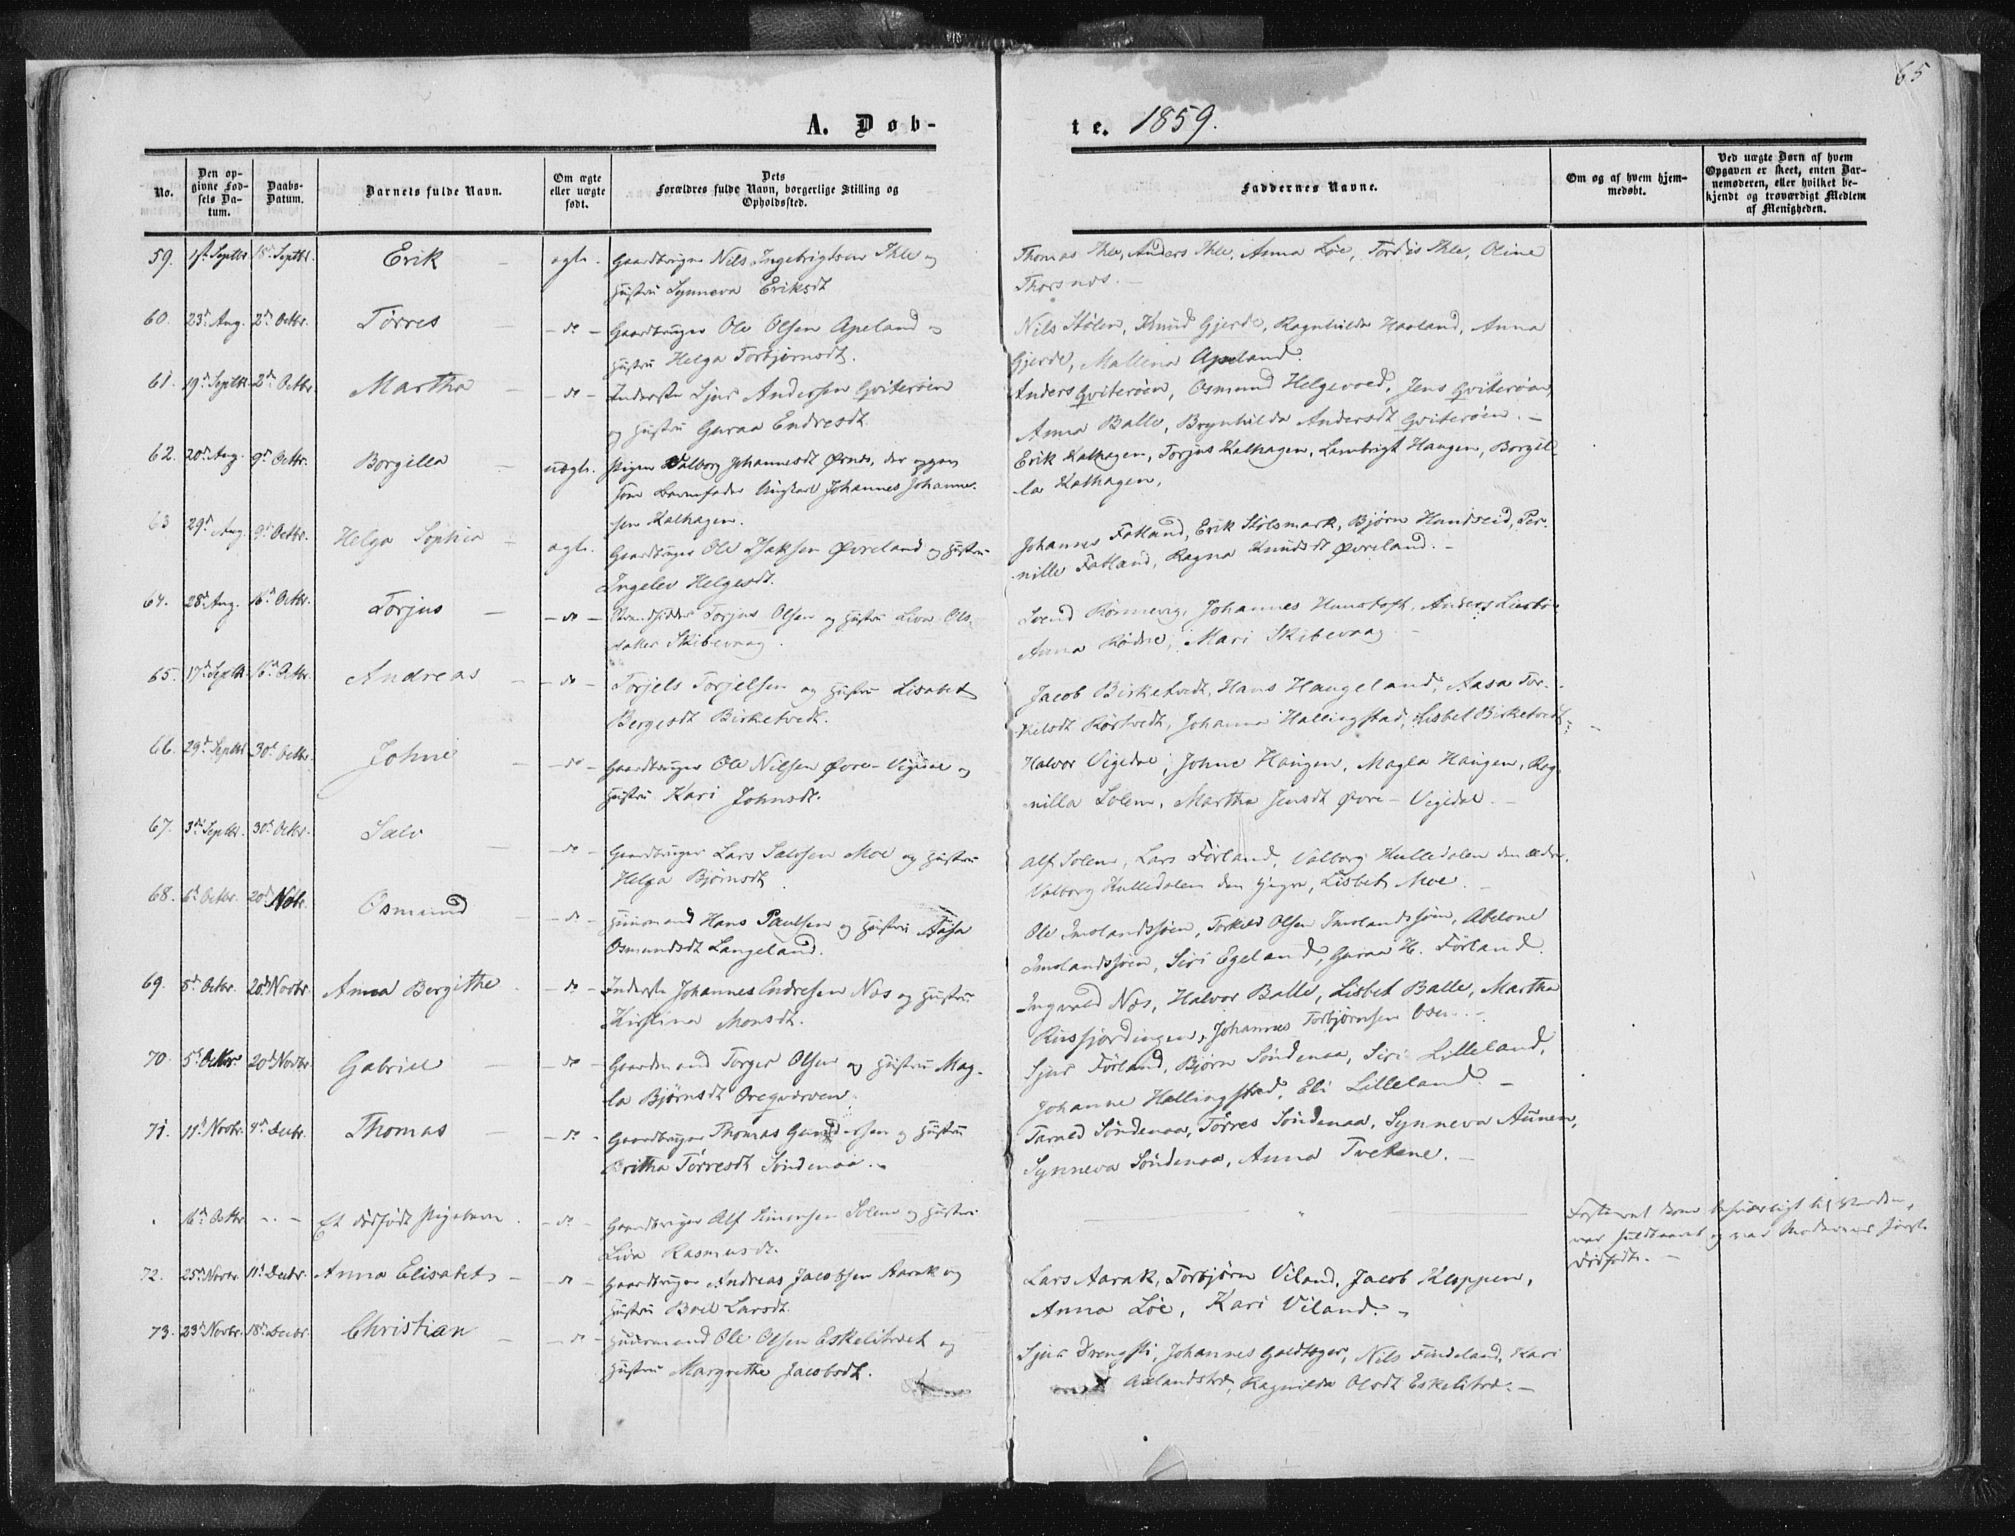 65
A. Døb-
te. 1859.
No.
Den op-
givne Fød-
sels Da-
tum.
Daabs-
Datum.
Barnets fulde Navn.
Om ægte
eller uægte
født.
Dets
Forældres fulde Navn, borgerlige Stilling og
Opholdssted.
Faddernes Navne.
Om og af hvem hjem-
medøbt.
Ved uægte Børn af hvem
Opgaven er skeet, enten Bar-
nemoderen, eller hvilket be-
kjendt og troværdigt Medlem
af Menigheden.
59. Septbr 18 Septbr. Erik ægte. Gaardbruger Nils Ingebrigtsen Ihle og
Hustru Synneva Eriksdt
Thomas Ihle, Anders Ihle, Anna Løe, Tordis Ihle, Oline
Thorsnæs. -
60. 23d Aug. 2d Octbr. Tørres - do - Gaardbruger Ole Olsen Apeland og
Hustru Helga Torbjørnsdt.
Nils Stølen, Knud Gjerde, Ragnhilda Haaland, Anna
Gjerde, Mallena Apeland.
61. 19d Septbr. 2d Octbr. Martha - do - Inderste Sjur Andersen Qviterøen
og Hustru Guroa Endresdt.
Anders Qviterøen, Osmund Helgevold, Jens Qviterøen,
Anna Balle, Brynhilda Andersdt Qviterøen. -
62. 20d Aug. 9d Octbr. Borgilla - uægte. Pigen Valborg Johannesdt Ørnes, der opgav
som Barnefader Ungkarl Johannes Johanne-
sen Kalhagen.
Erik Kalhagen, Torjus Kalhagen, Lambrigt Haugen, Borgil-
la Kalhagen,
63 29d Aug. 9d Octbr. Helga Sophia - ægte. Gaardbruger Ole Isaksen Øvreland og Hustru
Ingelev Helgesdt.
Johannes Fatland, Erik Stølsmark, Bjørn Handseid, Per-
nille Fatland, Ragna Knudsdt Øvreland. -
64. 28d Aug. 16d Octbr. Torjus - do - Strandsidder Torjus Olsen og Hustru Liva Ols-
datter Skibevaag.
Svend Rönnevig, Johannes Hunstoft, Anders
Anna Rødne, Mari Skibevaag -
65. 17d Septbr. 16d Octbr. Andreas - do - Torjels Torjelsen og Hustru Lisabet
Bergesdt Birketvedt.
Jacob Birketvedt, Hans Haugeland, Aasa Tor-
kelsdt Rørtvedt, Johanna Hallingstad, Lisbet Birketvedt. -
66. 29d Septbr. 30d Octbr. Johne - do - Gaardbruger Ole Nilsen Øvre-Vigedal og
Hustru Kari Johnsdt.
Halvor Vigedal, Johne Haugen, Magla Haugen, Rag-
nilla Solem, Martha Jensdt Øvre-Vigedal. -
67. 3d Septbr. 30d Octbr. Salv - do - Gaardbruger Lars Salvesen Moe og Hustru
Helga Bjørnsdt.
Alf Solem, Lars Førland, Valborg Hulledalen den ældre,
Valborg Hulledalen den yngre, Lisbet Moe. -
68. 6d Octbr. 20d Novbr. Osmund - do - Huusmand Hans Paulsen og Hustru Aasa
Osmundsdt Langeland.
Ole Imslandssjøen, Torkild Olsen Imslandssjøen, Abelone
Imslandssjøen, Siri Egeland, Guroa H. Førland.
69. 5d Octbr. 20d Novbr. Anna Bergithe - do - Inderste Johannes Endresen Næs og Hustru
Kirstina Monsdt.
Ingvald Næs, Halvor Balle, Lisbet Balle, Martha
Hiisfjordingen, Johannes Torbjørnsen Osen. -
70. 5d Octbr. 20d Novbr. Gabriel - do - Gaardmand Torger Olsen og Hustru Mag-
la Bjørnsdt Oreqværven.
Sjur Førland, Bjørn Søndenaa, Siri Lilleland,
Johanne Hallingstad, Eli Lilleland. -
71. 11d Novbr. 4d Decbr. Thomas - do - Gaardbruger Thomas Gundersen og Hustru
Britha Tørresdt Søndenaa. -
Tarald Søndenaa, Tørres Søndenaa, Synneva Aunen,
Synneva Søndenaa, Anna Tvetene. -
16d Octbr. - . - Et dødfødt Pigebarn. - do - Gaardbruger Alf Simonsen Solem og Hustru
Liva Rasmusdt.
Fosteret kom
var fuldbaaret og var Moderens første
dødfødte. -
72. 25d Novbr. 11d Decbr. Anna Elisabet - do - Gaardbruger Andreas Jacobsen Aarak og
Hustru Boel Larsdt.
Lars Aarak, Torbjørn Viland, Jacob Kloppen,
Anna Løe, Kari Viland. -
73. 23d Novbr. 18d Decbr. Christian - do - Huusmand Ole Olsen Eskelitræet og
Hustru Margrethe Jacobsdt.
Sjur Drengsti, Johannes Goldtoger, Nils Findeland, Kari
Aalandstræ, Ragnilda Olsdt Eskelitræ. -